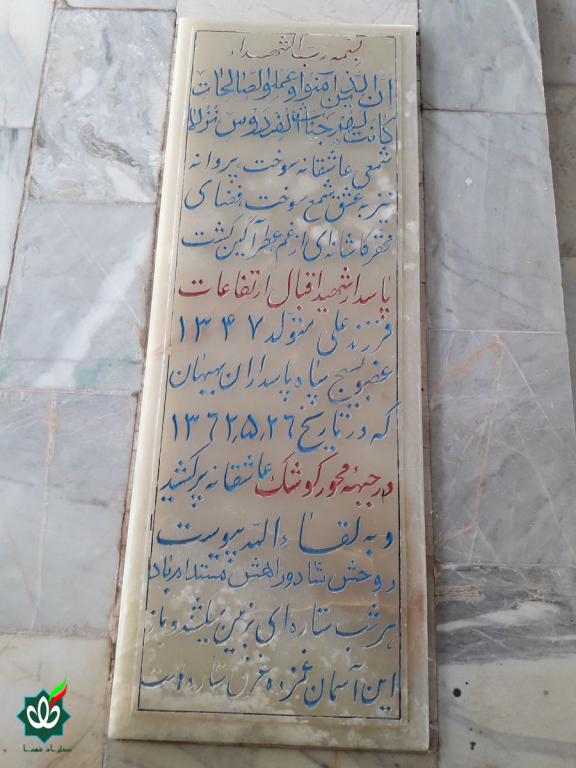 بسمه رب الشهداء
ان الذین آمنوا و عملو الصالحات
کانت لهم جنات الفردوس نزلا
شمعی عاشقانه سوخت پروانه
نیز به عشق شمع سوخت فضای
محقر کاشانه ای از غم عطر آگین گشت
پاسدار شهید اقبال ارتفاعات
فرزند علی متولد ۱۳۴۷
عضو بسیج سپاه پاسداران بهبهان
که در تاریخ ۱۳۶۲٫۵٫۲۶
در جبهه محور کوشک عاشقانه پر کشید
و به لقاء الله پیوست
روحش شاد و راهش مستدام باد
هر شب ستاره ای بزمین میکشند و باز
این آسمان غمزده غرق ستاره هاست